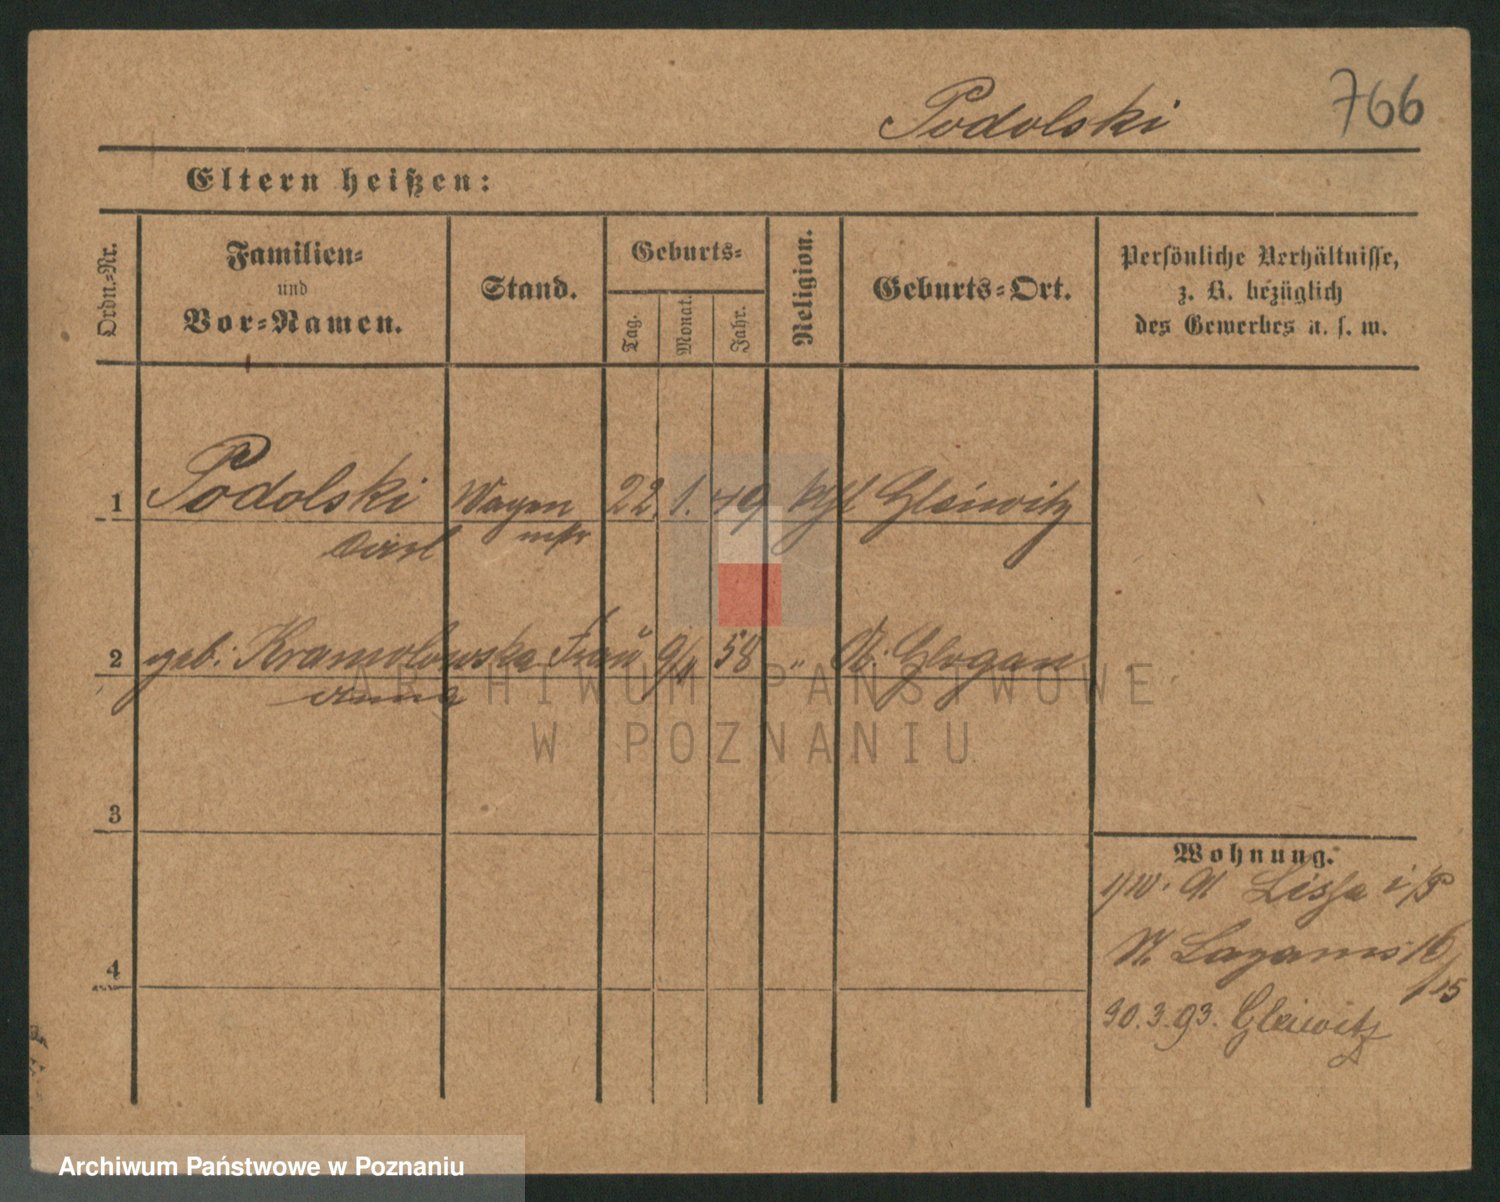 Podolski 766
Eltern heißen:
Ordn.-Nr.
Familien-
und
Vor-Namen.
Stand.
Geburts-
Tag.
Monat.
Jahr.
Religion.
Geburts-Ort.
Persönliche Verhältnisse,
z. B. bezüglich
des Gewerbes u. s. w.
1 Podolski Wagen 22. 1. 49 kth Gleiwitz
Carl mstr
2 geb. Kramolowska Frau 9/11 58 " Glogau
Anna
3
4
Wohnung.
1/10. 91 Lissa i/P
St. Lazarus 16
/15
30.3.93. Gleiwitz
ARCHIWUM PAŃSTWOWE
W POZNANIU
Archiwum Państwowe w Poznaniu